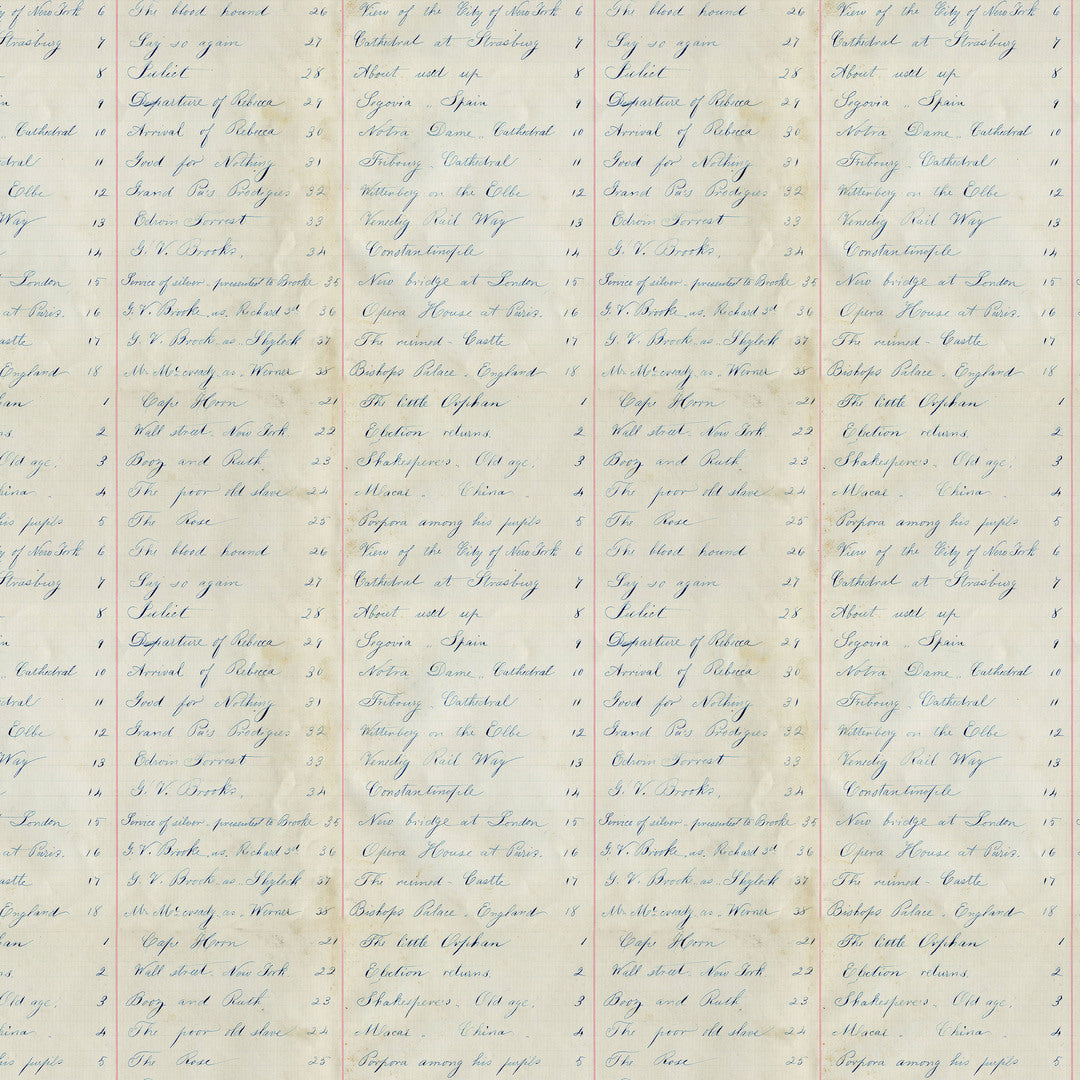 y of New York 6 The blood hound 26 View of the City of New York 6 The blood hound 26 View of the City of New York 6
Strasburg 7 Say so again 27 Cathedral at Strasburg 7 Say so again 27 Cathedral at Strasburg 7
8 Juliet 28 About used up 8 Juliet 28 About used up 8
n 9 Departure of Rebecca 29 Segovia ,, Spain 9 Departure of Rebecca 29 Segovia ,, Spain 9
,, Cathedral 10 Arrival of Rebecca 30 Notra Dame ,, Cathedral 10 Arrival of Rebecca 30 Notra Dame ,, Cathedral 10
dral 11 Good for Nothing 31 Fribourg . Cathedral 11 Good for Nothing 31 Fribourg . Cathedral 11
Elbe 12 Grand Pa's Prodigies 32 Wittenberg on the Elbe 12 Grand Pa's Prodigies 32 Wittenberg on the Elbe 12
Way 13 Edwin Forrest 33 Venedig Rail Way 13 Edwin Forrest 33 Venedig Rail Way 13
14 G. V. Brooke, 34 Constantinople 14 G. V. Brooke, 34 Constantinople 14
t London 15 Service of silver - presented to Brooke 35 New bridge at London 15 Service of silver - presented to Brooke 35 New bridge at London 15
at Paris. 16 G. V. Brooke as. Richard 3d 36 Opera House at Paris. 16 G. V. Brooke as. Richard 3d 36 Opera House at Paris. 16
astle 17 G. V. Brook as Shylock 37 The ruined - Castle 17 G. V. Brook as Shylock 37 The ruined - Castle 17
England 18 Mr McCready as, Werner 38 Bishops Palace . England 18 Mr McCready as, Werner 38 Bishops Palace . England 18
an 1 Cape Horn 21 The little Orphan 1 Cape Horn 21 The little Orphan 1
ns 2 Wall street. New York 22 Election returns. 2 Wall street. New York 22 Election returns. 2
Old age. 3 Booz and Ruth 23 Shakespere's . Old age. 3 Booz and Ruth 23 Shakespere's . Old age. 3
hina 4 The poor old slave 24 Macai . China 4 The poor old slave 24 Macai . China 4
his pupils 5 The Rose 25 Porpora among his pupils 5 The Rose 25 Porpora among his pupils 5
y of New York 6 The blood hound 26 View of the City of New York 6 The blood hound 26 View of the City of New York 6
Strasburg 7 Say so again 27 Cathedral at Strasburg 7 Say so again 27 Cathedral at Strasburg 7
8 Juliet 28 About used up 8 Juliet 28 About used up 8
n 9 Departure of Rebecca 29 Segovia ,, Spain 9 Departure of Rebecca 29 Segovia ,, Spain 9
,, Cathedral 10 Arrival of Rebecca 30 Notra Dame ,, Cathedral 10 Arrival of Rebecca 30 Notra Dame ,, Cathedral 10
dral 11 Good for Nothing 31 Fribourg . Cathedral 11 Good for Nothing 31 Fribourg . Cathedral 11
Elbe 12 Grand Pa's Prodigies 32 Wittenberg on the Elbe 12 Grand Pa's Prodigies 32 Wittenberg on the Elbe 12
Way 13 Edwin Forrest 33 Venedig Rail Way 13 Edwin Forrest 33 Venedig Rail Way 13
14 G. V. Brooke, 34 Constantinople 14 G. V. Brooke, 34 Constantinople 14
t London 15 Service of silver - presented to Brooke 35 New bridge at London 15 Service of silver - presented to Brooke 35 New bridge at London 15
at Paris. 16 G. V. Brooke as. Richard 3d 36 Opera House at Paris. 16 G. V. Brooke as. Richard 3d 36 Opera House at Paris. 16
astle 17 G. V. Brook as Shylock 37 The ruined - Castle 17 G. V. Brook as Shylock 37 The ruined - Castle 17
England 18 Mr McCready as, Werner 38 Bishops Palace . England 18 Mr McCready as, Werner 38 Bishops Palace . England 18
an 1 Cape Horn 21 The little Orphan 1 Cape Horn 21 The little Orphan 1
ns 2 Wall street. New York 22 Election returns. 2 Wall street. New York 22 Election returns. 2
Old age. 3 Booz and Ruth 23 Shakespere's . Old age. 3 Booz and Ruth 23 Shakespere's . Old age. 3
hina 4 The poor old slave 24 Macai . China 4 The poor old slave 24 Macai . China 4
his pupils 5 The Rose 25 Porpora among his pupils 5 The Rose 25 Porpora among his pupils 5